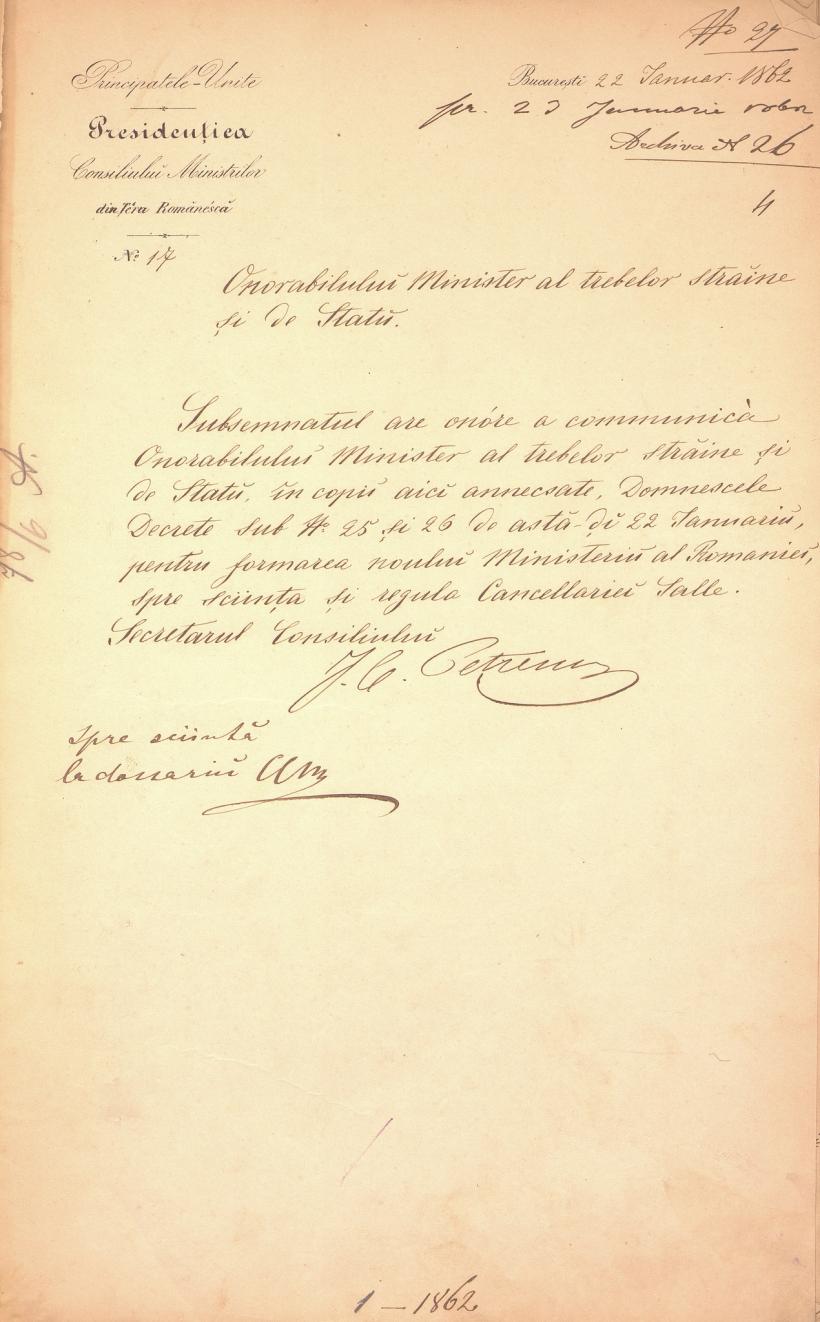 No 27
Principatele-Unite
Presidenția
Consiliului Miniștrilor
din Țéra Românéscă
No 17
Bucuresti 22 Ianuar. 1862
pr. 23 Januarie
Archiva N 26
4
Onorabilului Minister al trebelor străine
și de Statŭ.
Subsemnatul are onóre a communicà
Onorabilului Minister al trebelor străine și
de Statŭ, în copiĭ aicĭ annecsate, Domnescele
Decrete sub No 25 și 26 de astă-ḑĭ 22 Ianuariŭ,
pentru formarea noului Ministeriŭ al Romanieĭ,
spre sciința și regula Cancellarieĭ Salle.
Secretarul Consiliuluĭ
spre sciință
la
1 — 1862